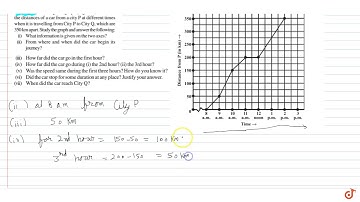 the distances of a car from a city P at different times
when it is travelling from City P to City Q, which are
350 km apart. Study the graph and answer the following:
(i) What information is given on the two axes?
(ii) From where and when did the car begin its
journey?
(iii) How far did the car go in the first hour?
(iv) How far did the car go during (i) the 2nd hour? (ii) the 3rd hour?
(v) Was the speed same during the first three hours? How do you know it?
(vi) Did the car stop for some duration at any place? Justify your answer.
(vii) When did the car reach City Q?
Distance from P (in km) →
350
300
250
200
150
100
50
0
8 9 10 11 12 1 2 3
a.m. a.m. a.m. a.m. noon p.m. p.m. p.m.
Time →
(ii) at 8 a.m from City P
(iii) 50 km
(iv) for 2nd hour = 150-50 = 100 km.
3rd hour = 200-150 = 50 km